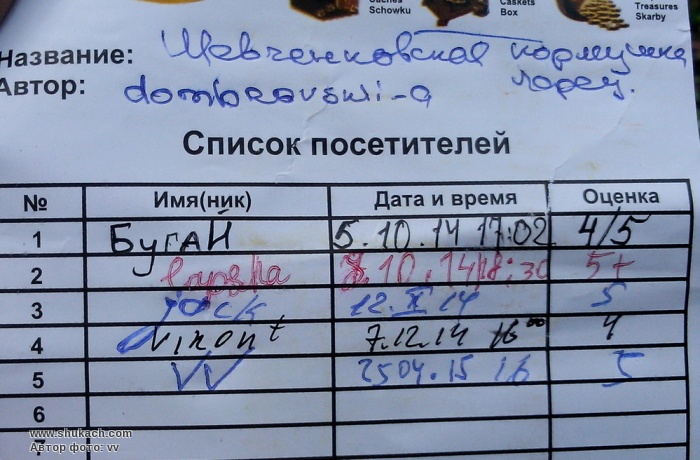 Caches
Schowku
Caskets
Box
Treasures
Skarby
Название: Шевченковская кормушка
Автор: dombrovski-a ларец.
Список посетителей
№ Имя(ник) Дата и время Оценка
1 БУГАЙ 5.10.14 17:02 4/5
2 .10.14 18:30 5+
3 12.X 14 5
4 Vixont 7.12.14 16 00 4
5 VV 2504.15 16 5
6
7
www.shukach.com
Автор фото: vv